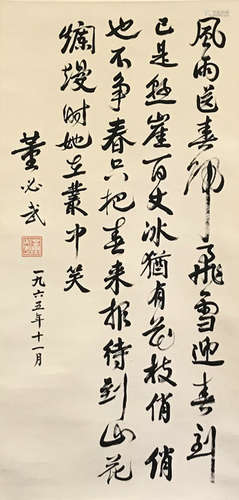 風雨送春歸飛雪迎春到
已是懸崖百丈冰猶有花枝俏俏
也不争春只把春来报待到山花
爛熳时她在叢中笑
董必武
一九六五年十一月